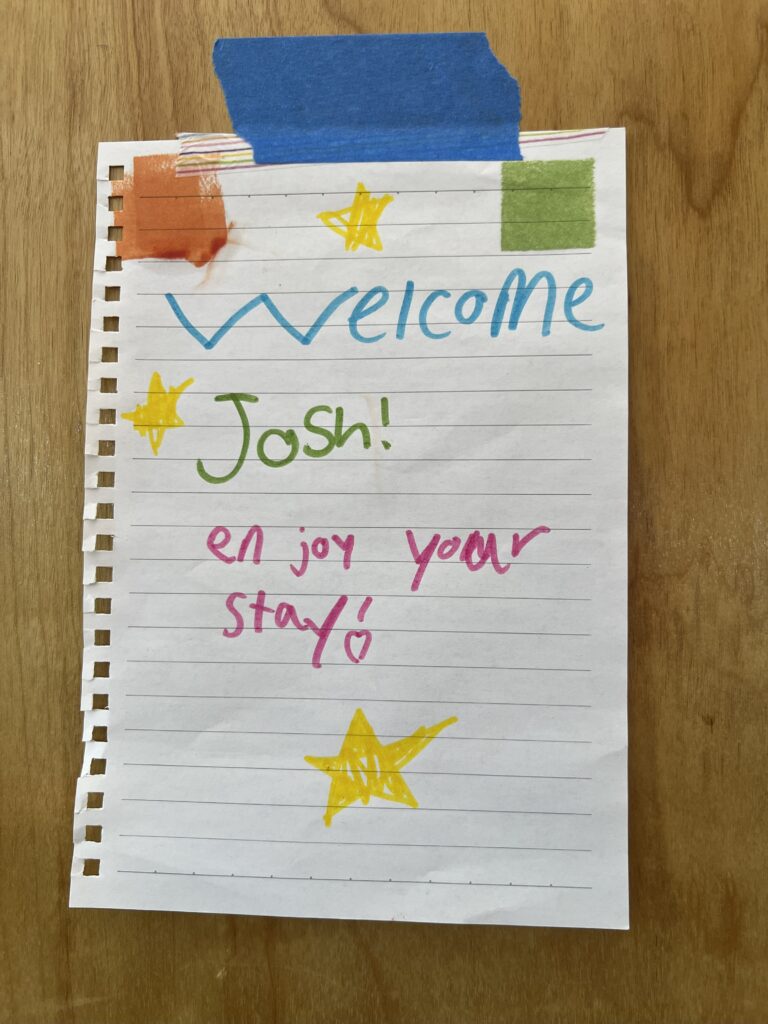 Welcome
Josh!
enjoy your
stay!